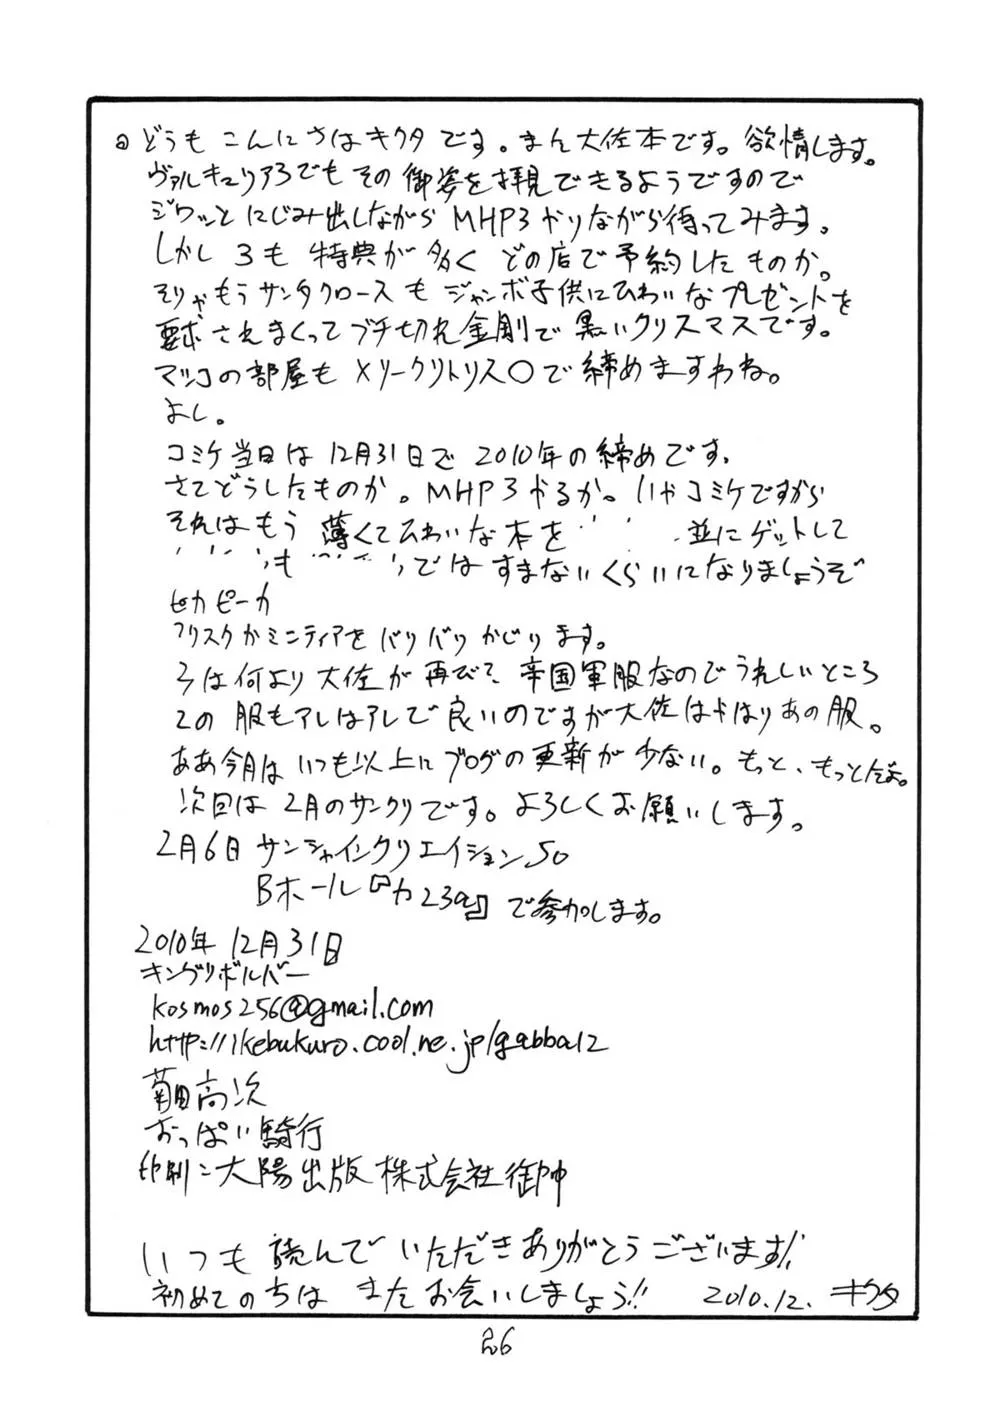 どうも こんにちはキクタです。まん大佐本です。欲情します。
ヴァルキュリア3でもその御姿を拝見できるようですので
ジワッとにじみ出しながら MHP3やりながら待ってみます。
しかし 3も 特典が多く どの店で予約したものか。
そりゃもうサンタクロースも ジャンボ子供にひわいなプレゼントを
要求されまくってブチ切れ金剛で黒いクリスマスです。
マツコの部屋も メリークリトリス〇で締めますわね。
よし。
コミケ当日は12月31日で 2010年の締めです。
さてどうしたものか。MHP3やるか。いやコミケですから
それはもう 薄くてひわいな本を 並にゲットして
も ではすまないくらいになりましょうぞ
ピカピーカ
フリスクかミンティアをバリバリかじります。
3は何より大佐が再びで、帝国軍服なのでうれしいところ
この服もアレはアレで良いのですが大佐はやはりあの服。
ああ今月はいつも以上にブログの更新が少ない。もっと、もっとだよ。
次回は2月のサンクリです。よろしくお願いします。
2月6日 サンシャインクリエイション50
Bホール『カ23a』で参加します。
2010年12月31日
キングリボルバー
kosmos256@gmail.com
http://ikebukuro.cool.ne.jp/gabba12
菊田高次
おっぱい騎行
印刷：大陽出版株式会社御中
いつも読んでいただきありがとうございます!!
初めてのちは またお会いしましょう!! 2010.12. キクタ
26